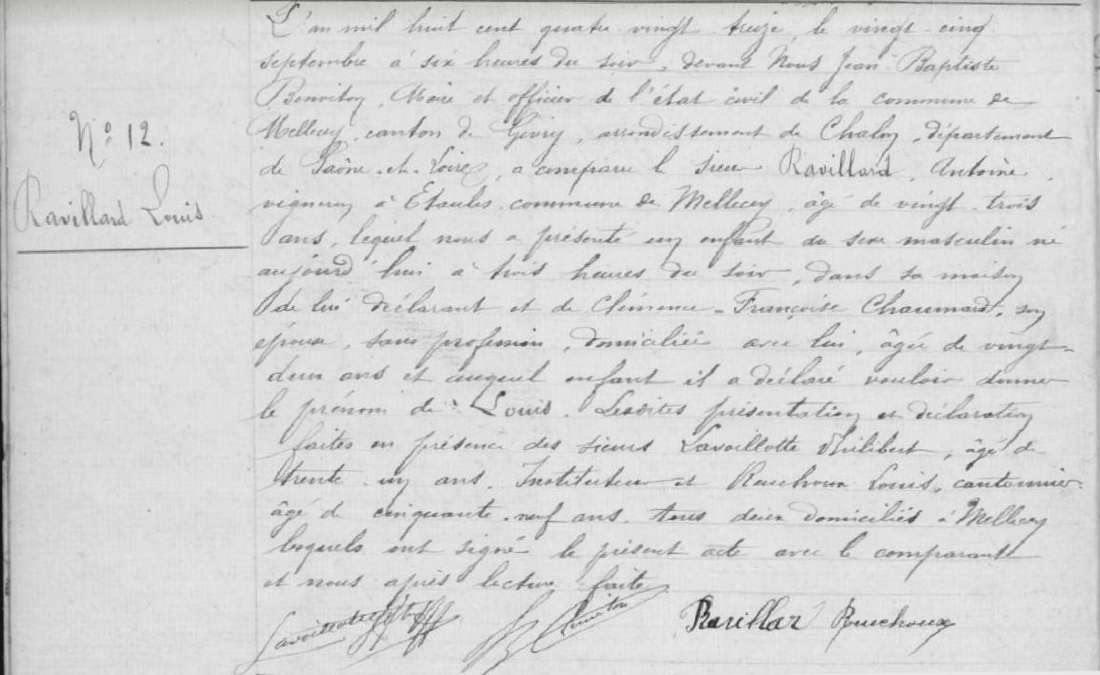 N° 12.
Ravillard Louis
L'an mil huit cent quatre vingt treize, le vingt cinq
septembre à six heures du soir, devant Nous Jean Baptiste
Maire et officier de l'état civil de la commune de
Mellecey, canton de Givry, arrondissement de Chalon, département
de Saône-et-Loire, a comparu le sieur Ravillard Antoine
vigneron à Etaules commune de Mellecey, âgé de vingt trois
ans, lequel nous a présenté un enfant du sexe masculin né
aujourd'hui à trois heures du soir, dans sa maison
de lui déclarant et de Clémence-Françoise Chaumard, son
épouse, sans profession, domiciliée avec lui, âgée de vingt-
deux ans et auquel enfant il a déclaré vouloir donner
le prénom de Louis. Lesdites présentation et déclaration
faites en présence des sieurs Lavoillotte Philibert, âgé de
trente un ans, Instituteur et Rouchoux Louis, cantonnier
âgé de cinquante-neuf ans, tous deux domiciliés à Mellecey
lesquels ont signé le présent acte avec le comparant
et nous après lecture faite
Ravillar Rouchoux